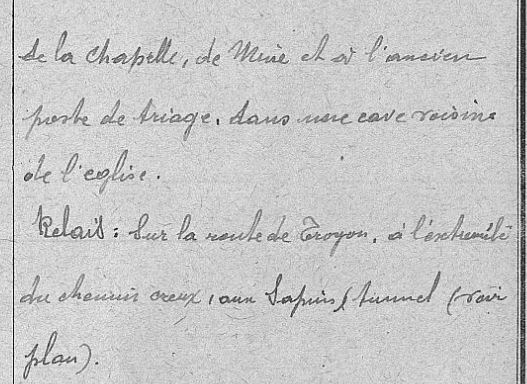 de la chapelle, de Meuse et à l'ancien
poste de triage, dans une cave voisine
de l'eglise.
Relais : Sur la route de Troyon, à l'extremité
du chemin creux, aux Sapins, tunnel (voir
plan).